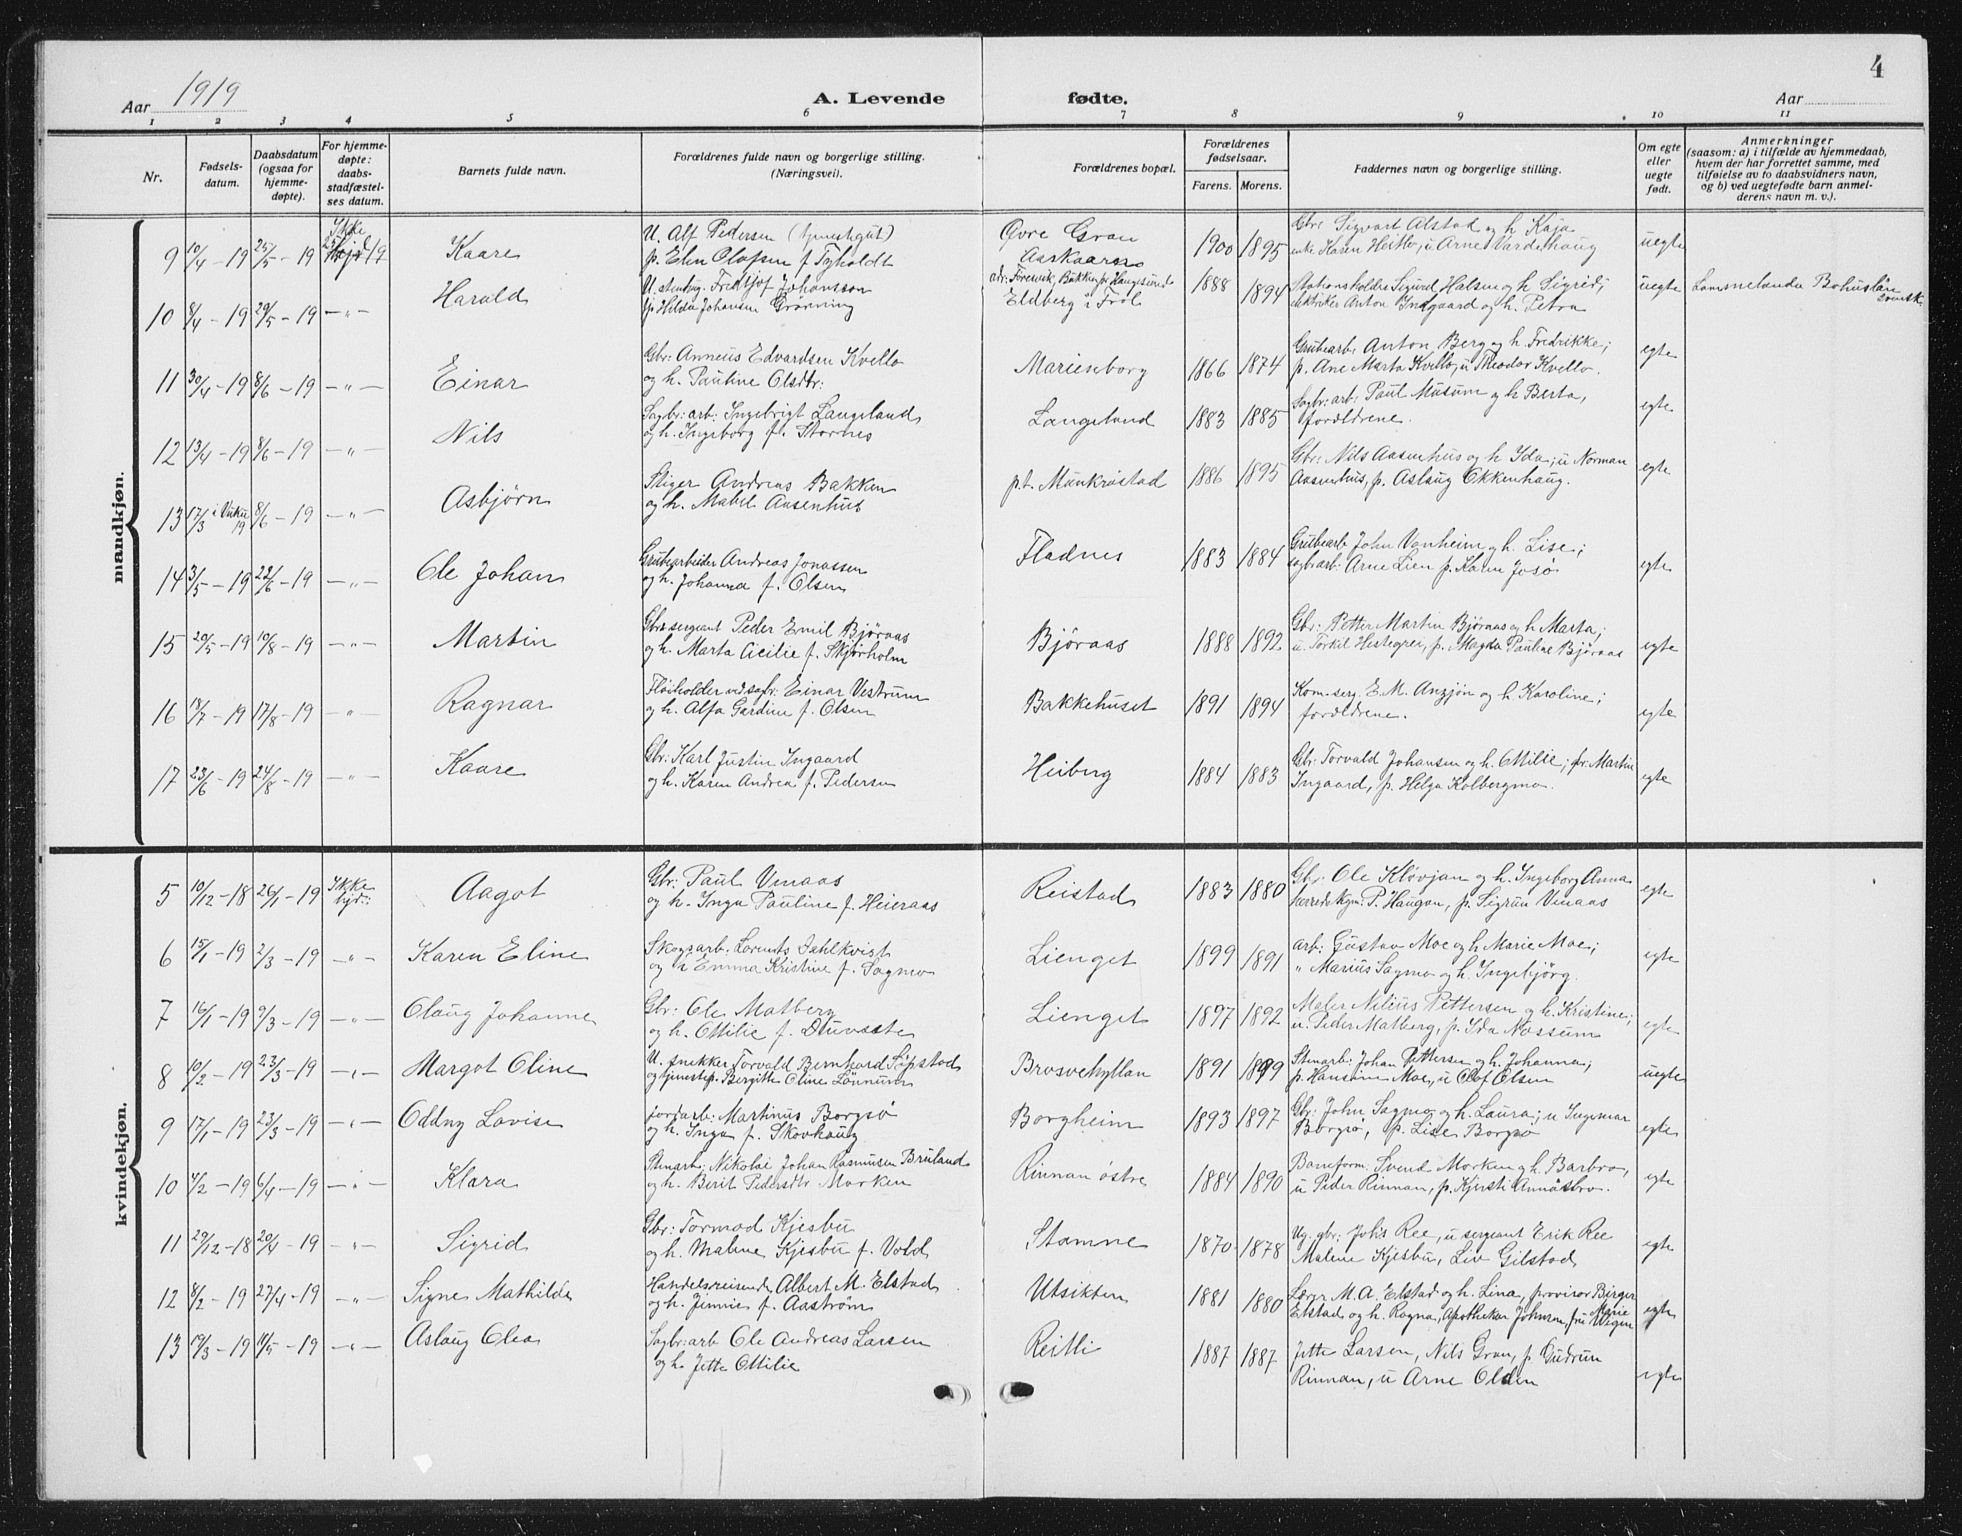 4
Aar 1919
A. Levende fødte.
Aar
1 2 3 4 5 6 7 8 9 10 11
Nr.
Fødsels-
datum.
Daabsdatum
(ogsaa for
hjemme-
døpte).
For hjemme-
døpte:
daabs-
stadfæstel-
ses datum.
Barnets fulde navn.
Forældrenes fulde navn og borgerlige stilling.
(Næringsvei).
Forældrenes bopæl.
Forældrenes
fødselsaar.
Farens. Morens.
Faddernes navn og borgerlige stilling.
Om egte
eller
uegte
født.
Anmerkninger
(saasom: a) i tilfælde av hjemmedaab,
hvem der har forrettet samme, med
tilføielse av to daabsvidners navn,
og b) ved uegtefødte barn anmel-
derens navn m. v.).
mandkjøn.
9 10/4 - 19 25/5 - 19 Ikke Kaare
U. Alf Pedersen (tjenestgut)
p. Elen Olofsen f. Tyholdt
Øvre Gran
Aaskaaren
1900 1895
Gbr Sigvart Alstad og h Kaja
enke Karen Heitlo, u Arne Vardehaug
uegte
10 8/4 - 19 29/5 - 19 - " - Harald
U. Fredtjof Johansson
p. Hilda Johansen Grønning
Eldberg i Frol
1888 1894
Stationsholder Sigurd Halsen og h Sigrid;
elektriker Anton Indgaard og h. Petra
uegte
Bohuslän
11 30/4 - 19 8/6 - 19 - " - Einar
Gbr: Anneus Edvardsen Kvello
og h. Pauline Olsdtr:
Marienborg
1866 1874
Grubearb. Anton Berg og h. Fredrikke;
p. Ane Marta Kvello, u Theodor Kvello.
egte
12 13/4 - 19 8/6 - 19 - " - Nils
Sagbr: arb: Ingebrigt Langeland
og h. Ingeborg f. Stornes
Langeland
1883 1885
Sagbr: arb: Paul Musum og h Berta,
forældrene.
egte
13 17/3 i Vuku 19 8/6 - 19 - " - Asbjørn
Stiger Andreas Bakken
og h. Mabel Aasenhus
p.t. Munkrøstad
1886 1895
Gbr: Nils Aasenhus og h Ida; u Norman
Aasenhus, p. Aslaug Okkenhaug.
egte
14 3/5 - 19 22/6 - 19 - " - Ole Johan
Grubearbeider Andreas Jonassen
og h. Johanna f. Olsen
Fladnes
1883 1884
Grubearb John Vonheim og h. Lise;
sagbr:arb: Arne Lien p. Karen Josø
egte
15 20/5 - 19 10/8 - 19 - " - Martin
Gbr: sergeant Peder Emil Bjøraas
og h. Marta Cicilie f. Skjørholm
Bjøraas
1888 1892
Gbr: Petter Martin Bjøraas og h Marta;
u. Torkil Hestegrei, p. Magda Pauline Bjøraas
egte
16 18/7 - 19 17/8 - 19 - " - Ragnar
Fløiholder ved sagbr: Einar Vestrum
og h. Alfa Gardine f. Olsen
Bakkehuset
1891 1894
Kom-serg. E. M. Anzjøn og h. Karoline;
forældrene.
egte
17 23/6 - 19 24/8 - 19 - " - Kaare
Gbr: Karl Justin Ingaard
og h. Karen Andrea f. Pedersen
Heiberg
1884 1883
Gbr Torvald Johansen og h. Ottilie; fr: Martin
Ingaard, p. Helga Kolbergmo.
egte
kvindekjøn.
5 10/12 - 18 26/1 - 19 Ikke hjd:. Aagot
Gbr: Paul Vinaas
og h. Inga Pauline f. Heieraas
Reistad
1883 1880
Gbr: Ole Kløvjan og h. Ingeborg Anna
herredskgm: P. Haugan, p. Sigrun Vinaas
egte
6 15/1 - 19 2/3 - 19 - " - Karen Eline
Skogsarb. Lorents Dahlkvist
og h Emma Kristine f. Sagmo
Lienget
1899 1891
arb: Gustav Moe og h. Marie Moe;
" Marius Sagmo og h. Ingebjørg.
egte
7 16/1 - 19 9/3 - 19 - " - Olaug Johanne
Gbr: Ole Matberg
og h. Ottilie f. Stuvaste
Lienget
1897 1892
Maler Nilius Pettersen og h. Kristine;
u. Peder Matberg, p. Ida Nossum
egte
8 10/2 - 19 23/3 - 19 - " - Margot Oline
U. snekker Torvald Bernhard Søpstad
og tjenestep. Bergitte Oline Lønnum
Brosvehyllan
1891 1899
Stenarb: Johan Pettersen og h. Johanna;
p. Hansine Moe, u Olof Olsen
uegte
9 17/1 - 19 23/3 - 19 - " - Oddny Lovise
jordarb: Martinus Borgsø
og h. Inga f. Skovhaug
Borgheim
1893 1897
Gbr: John Sagmo og h. Laura; u Ingemar
Borgsø, p. Lise Borgsø
egte
10 4/2 - 19 6/4 - 19 - " - Klara
Stenarb: Nikolai Johan Rasmusen Bruland
og h. Berit Pedersdtr Morken
Rinnan østre
1884 1890
Baneform: Svend Morken og h. Barbro,
u Peder Rinnan, p. Kjersti Annøsbro.
egte
11 29/12 - 18 20/4 - 19 - " - Sigrid
Gbr: Tormod Kjesbu
og h. Malene Kjesbu f. Vold
Stamne
1870 1878
Ug. gbr: Johs Ree, u sergeant Erik Ree
Malene Kjesbu, Liv Gilstad
egte
12 8/2 - 19 27/4 - 19 - " - Signe Mathilde
Handelsreisende Albert M. Elstad
og h. Jinnie f. Aastrøm
Utsikten
1881 1880
Lærer M. A. Elstad og h. Lina, provisor Birger
Elstad og h. Ragna, Apotheker Johnsen, frk Marie Wigen
egte
13 19/3 - 19 11/5 - 19 - " - Aslaug Olea
Sagbr: arb Ole Andreas Larsen
og h. Jette Ottilie
Reitli
1887 1887
Jette Larsen, Nils Gran, p Gudrun
Rinnan, u Arne Olden
egte